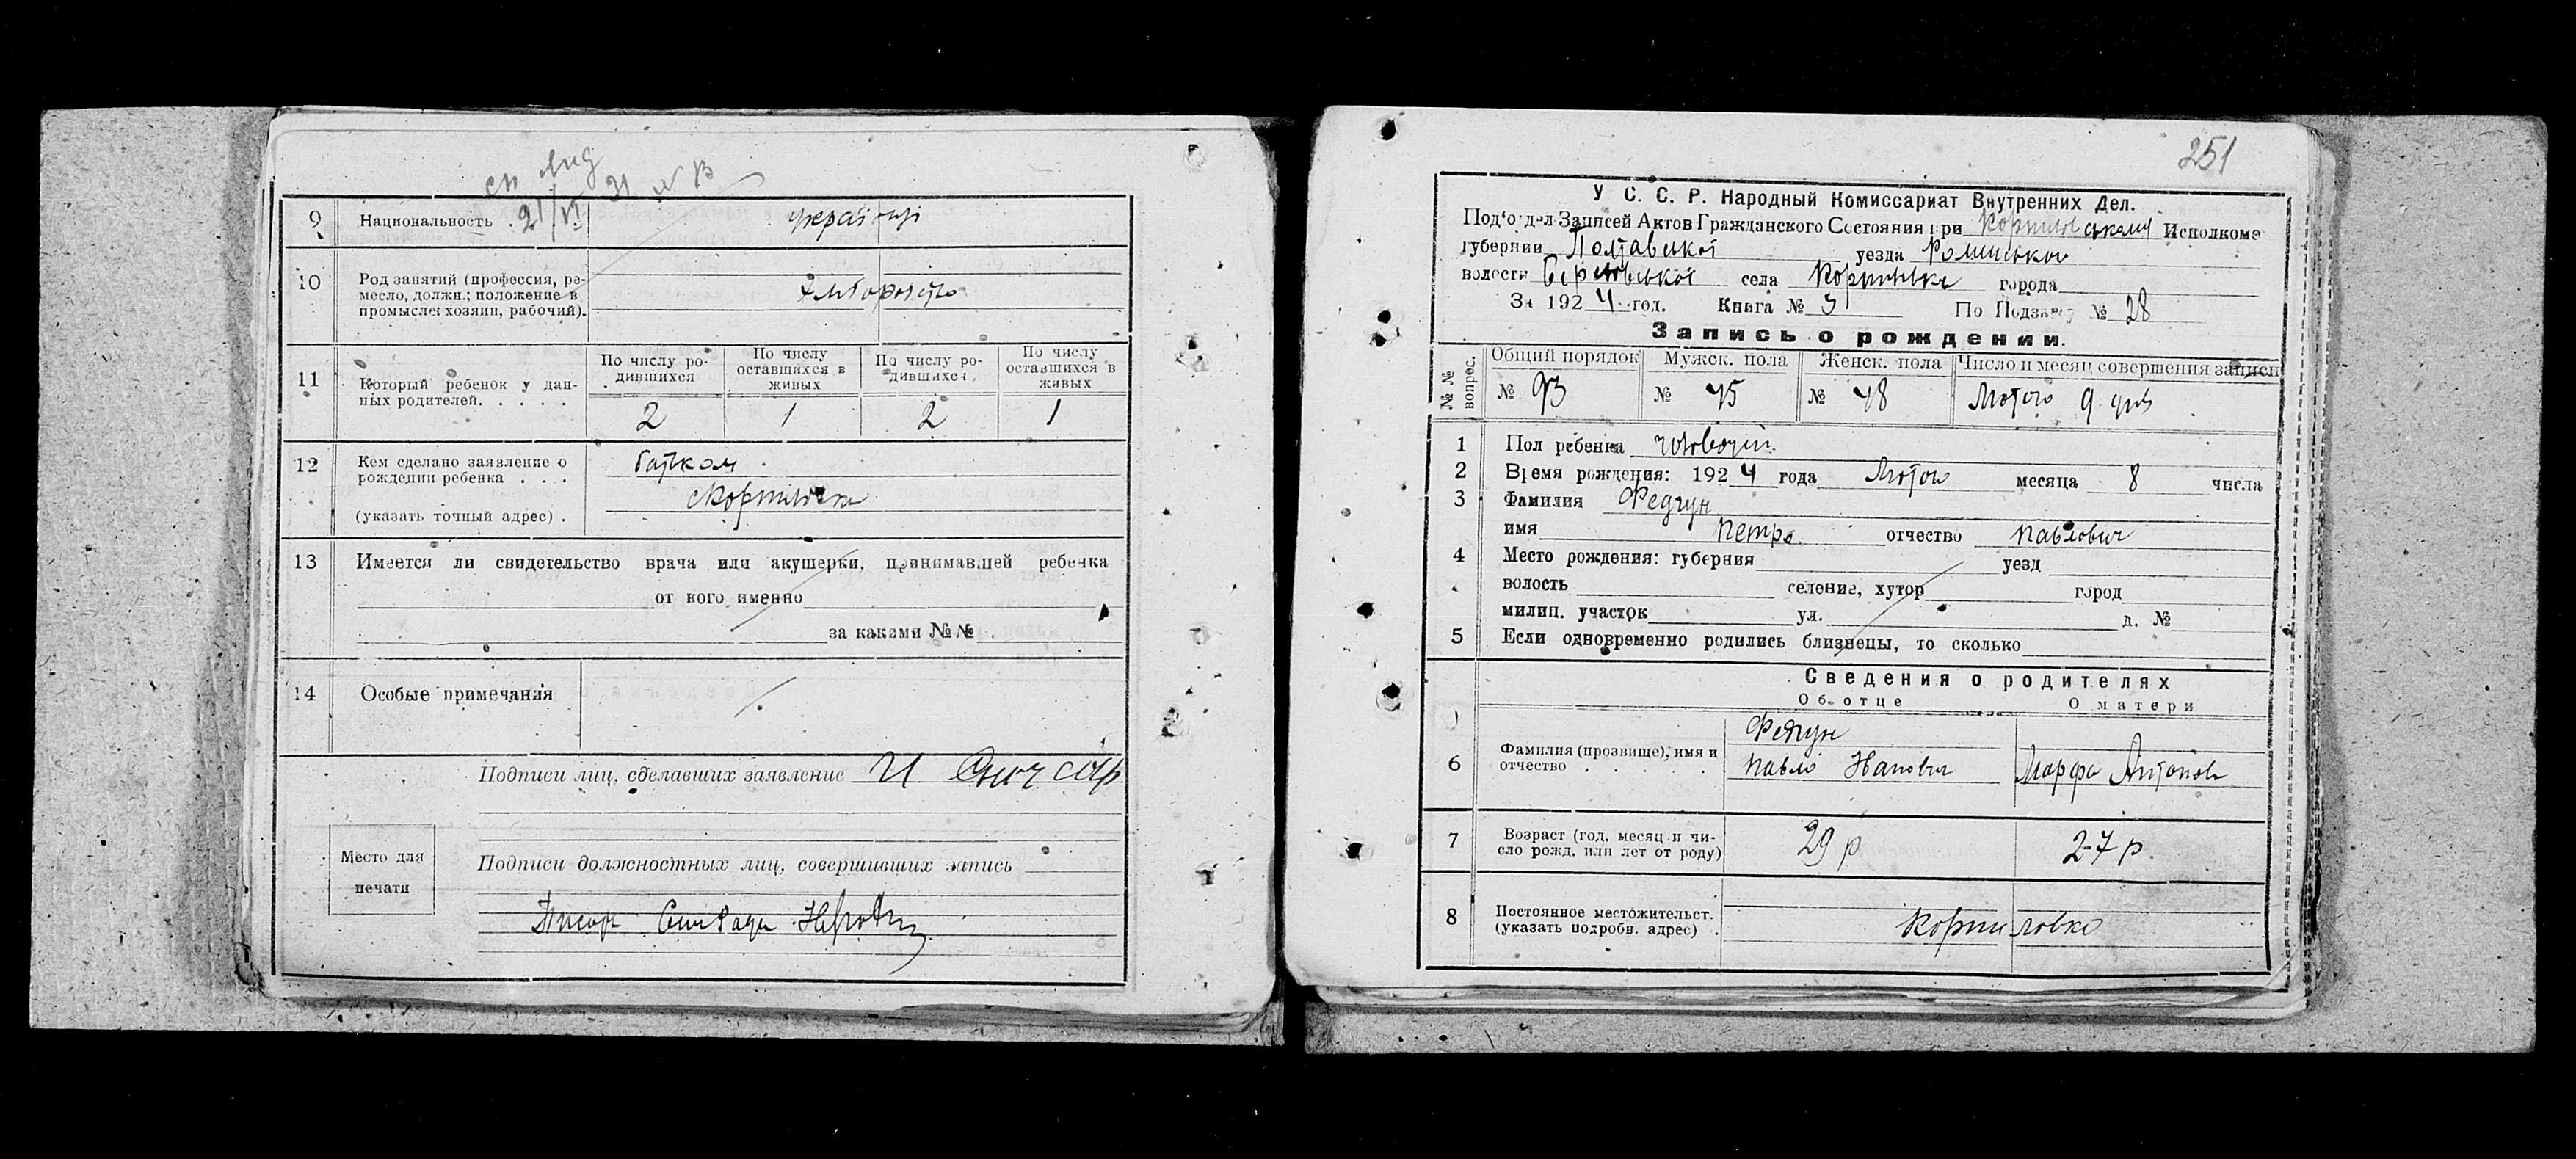 9 Национальность . украї нці
10 Род занятий (профессия, ре-
месло, должн.; положение в
промысле: хозяин, рабочий).
11 Который ребенок у дан-
ных родителей. . . . .
По числу ро-
дившихся
По числу
оставшихся в
живых
По числу ро-
дившихся
По числу
оставшихся в
живых
2 1 2 1
12 Кем сделано заявление о
рождении ребенка . . .
(указать точный адрес) .
батьком
13 Имеется ли свидетельство врача или акушерки, принимавшей ребенка
от кого именно
за какими №№
14 Особые примечания
Подписи лиц, сделавших заявление
Место для
печати
Подписи должностных лиц, совершивших запись
251
У С. С. Р. Народный Комиссариат Внутренних Дел.
Под'отдел Записей Актов Гражданского Состояния при Исполкоме
губернии Полтавської уезда Роменського
волости села города
За 1924 год. Книга № 3 По Подзагс № 28
Запись о рождении.
№№ вопрос.
Общий порядок Мужск. пола Женск. пола Число и месяц совершения записи
№ 93 № 45 № 48 Лютого 9 дня
1 Пол ребенка чоловочий
2 Время рождения: 1924 года Лютого месяца 8 числа
3 Фамилия Федчун
имя Петро отчество Павлович
4 Место рождения: губерния уезд
волость селение, хутор город
милиц. участок ул. д. №
5 Если одновременно родились близнецы, то сколько
Сведения о родителях
Об отце О матери
6 Фамилия (прозвище), имя и
отчество . . . . . .
Федчун
Павло Иванович Марфа Антонов
7 Возраст (год, месяц и чи-
сло рожд. или лет от роду)
29 р 27 р.
8 Постоянное местожительст.
(указать подробн. адрес) .
Корниловка